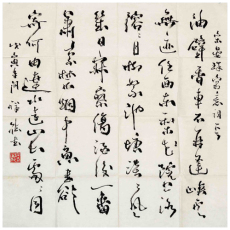 油壁香車不再逢峽雲
無跡任西東梨花院落溶
溶月柳絮池塘淡淡風
幾日寂寥傷酒後一番
蕭索禁煙中魚書欲
寄何由達水遠山長處處同
戊寅年